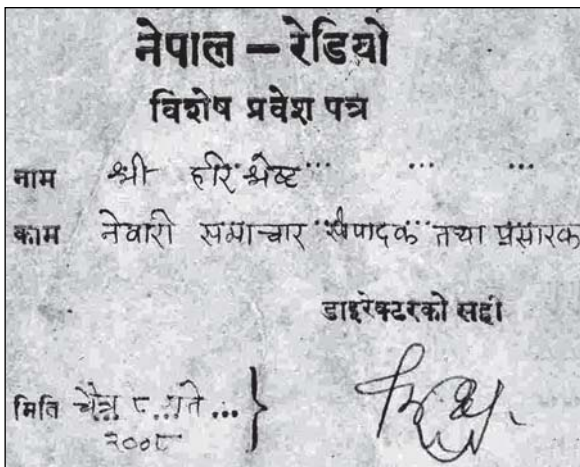 नेपाल – रेडियो
विशेष प्रवेश पत्र
नाम श्री हरि श्रेष्ठ ... ... ...
काम नेवारी समाचार संपादक तथा प्रसारक
डाइरेक्टरको सही
मिति चैत्र ८ गते ...
२००८